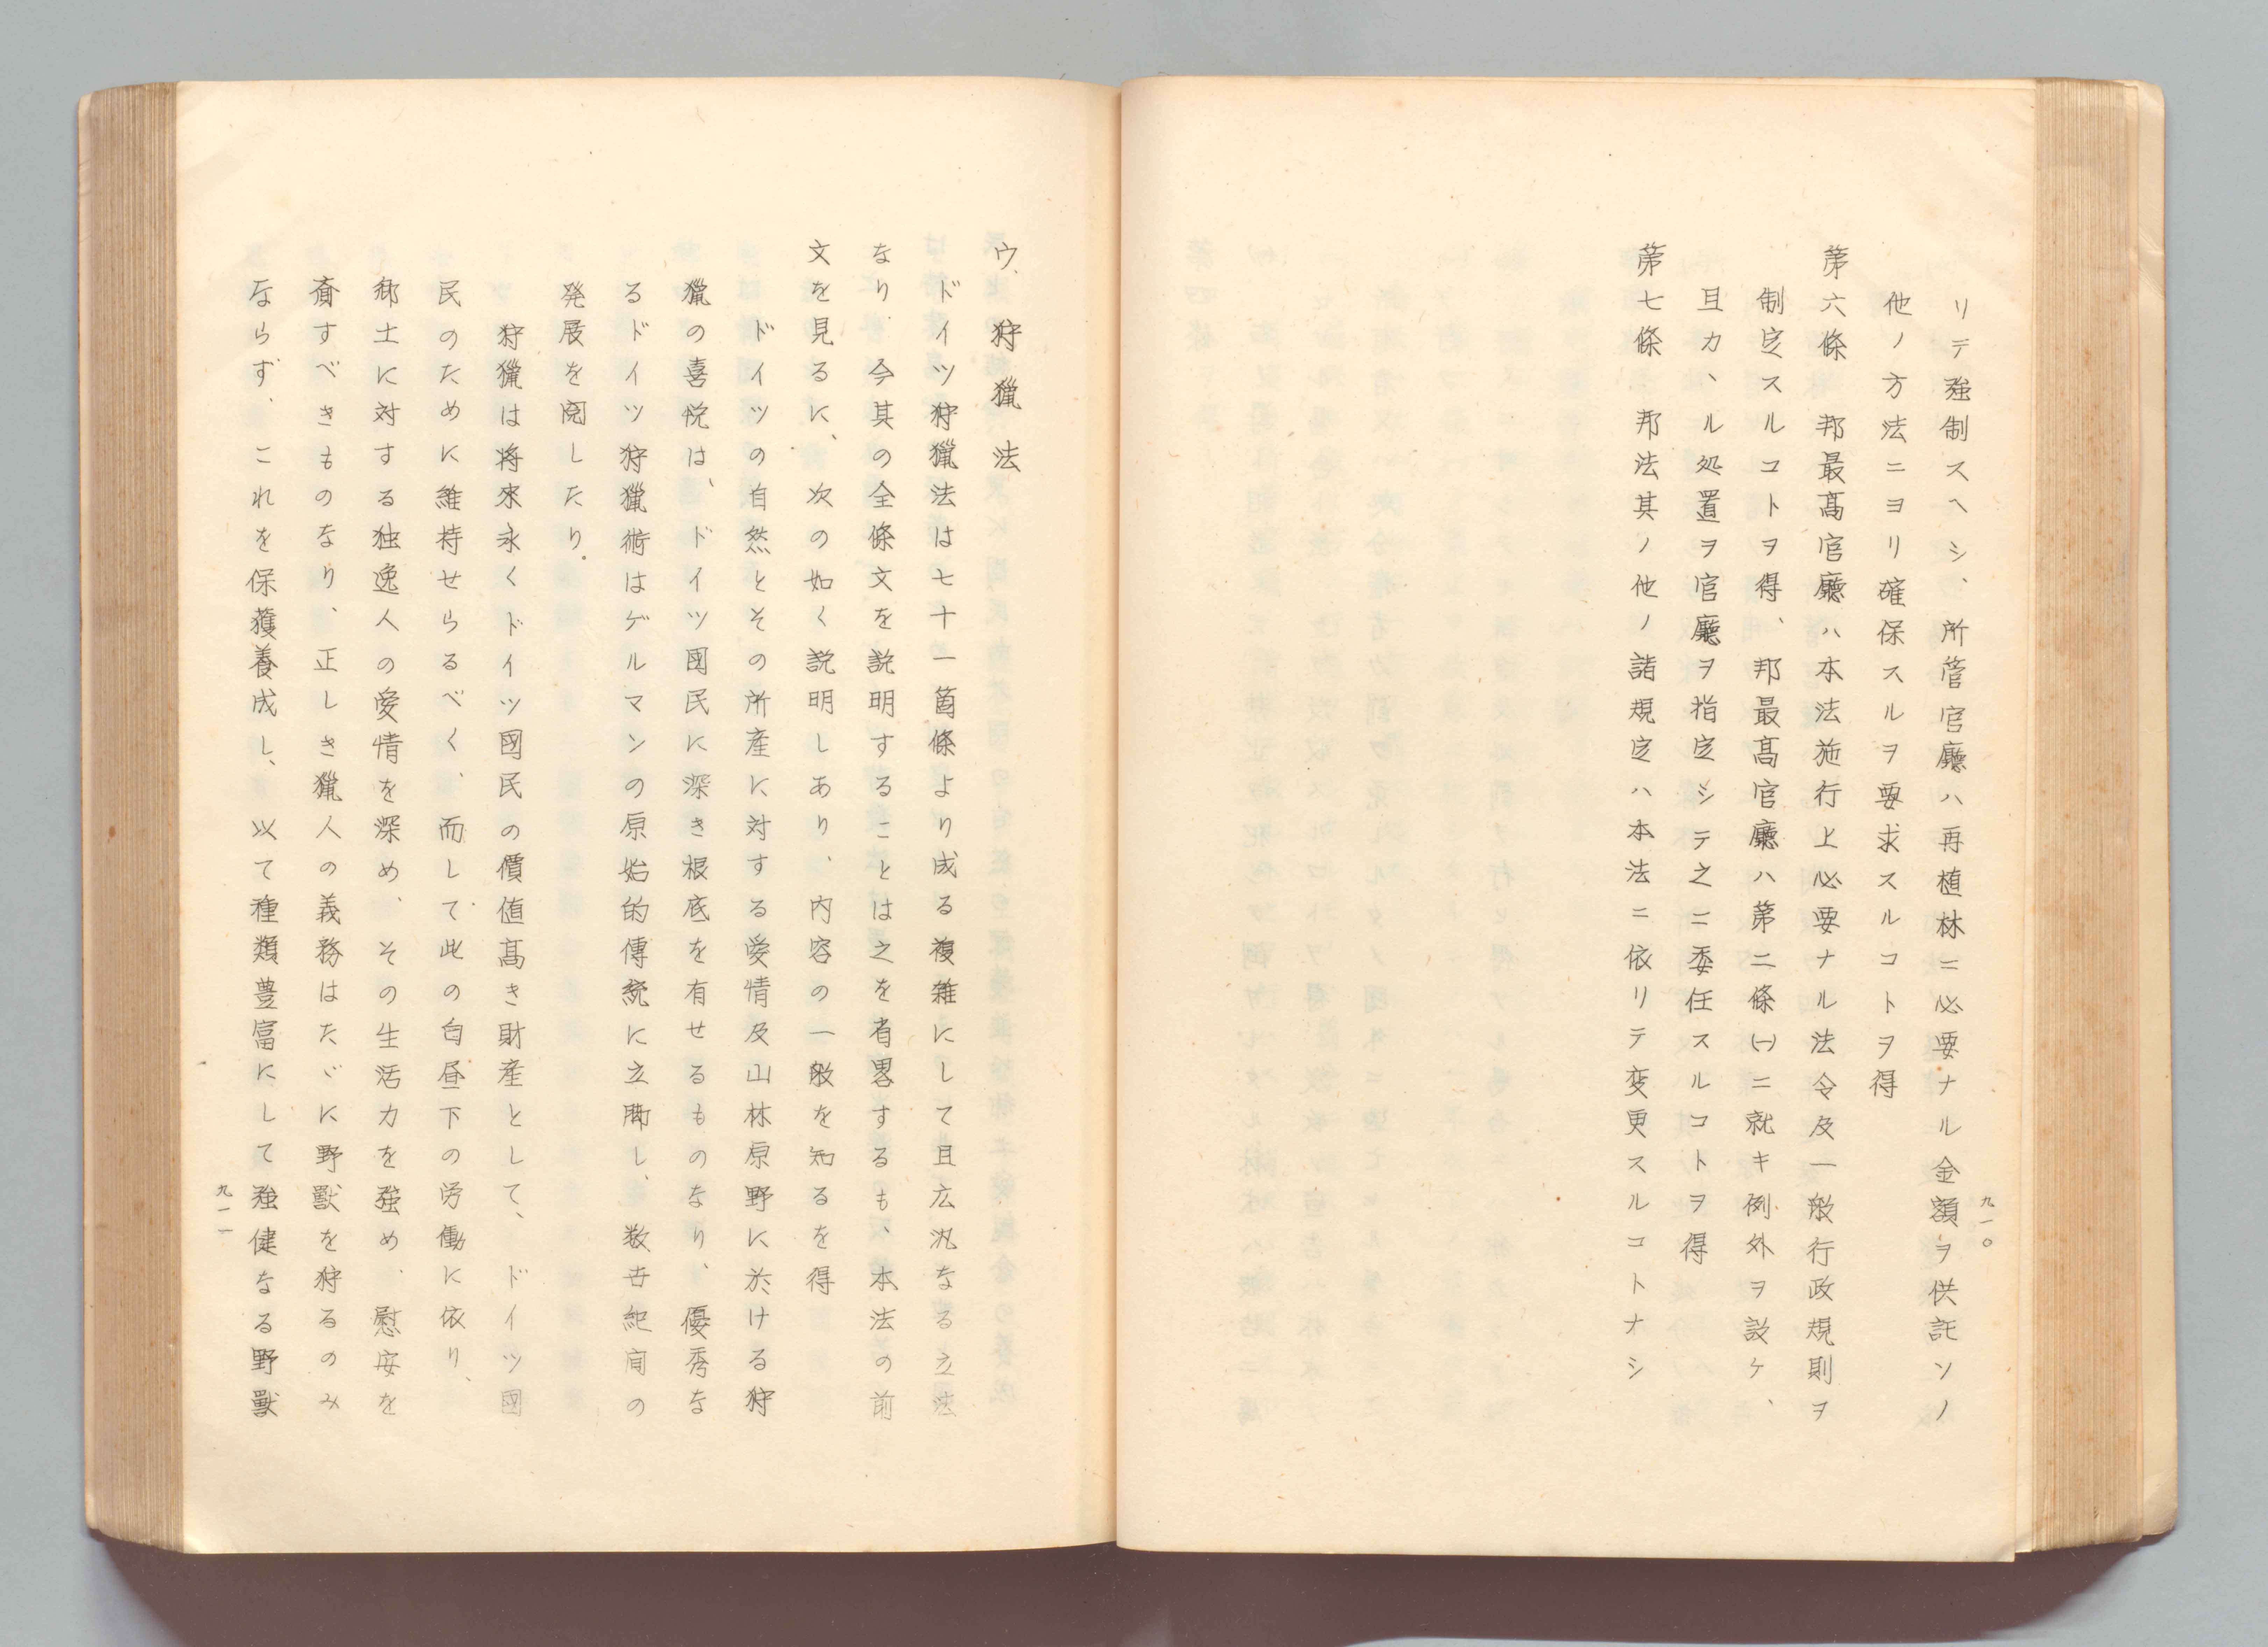 リテ強制スヘシ、所管官廳ハ再植林ニ必要ナル金額ヲ供託ソノ
他ノ方法ニヨリ確保スルヲ要求スルコトヲ得
第六條　邦最高官廳ハ本法施行上必要ナル法令及一般行政規則ヲ
制定スルコトヲ得、邦最高官廳ハ第二條㈠ニ就キ例外ヲ設ケ、
且カヽル処置ヲ官廳ヲ指定シテ之ニ委任スルコトヲ得
第七條　邦法其ノ他ノ諸規定ハ本法ニ依リテ変更スルコトナシ
九一〇
ウ、狩獵法
ドイツ狩獵法は七十一箇條より成る複雑にして且広汎なる立法
なり．今其の全條文を説明することは之を省畧するも、本法の前
文を見るに、次の如く説明しあり、内容の一般を知るを得
ドイツの自然とその所產に対する愛情及山林原野に於ける狩
獵の喜悦は、ドイツ國民に深き根底を有せるものなり、優秀な
るドイツ狩獵術はゲルマンの原始的傳統に立脚し、数世紀间の
発展を閲したり．
狩獵は将來永くドイツ國民の價値高き財産として、ドイツ國
民のために維持せらるべく、而して此の白昼下の労働に依り、
郷土に対する独逸人の愛情を深め、その生活力を强め、慰安を
齎すべきものなり、正しき獵人の義務はたゞに野獸を狩るのみ
ならず、これを保護養成し、以て種類豊富にして强健なる野獸
九一一